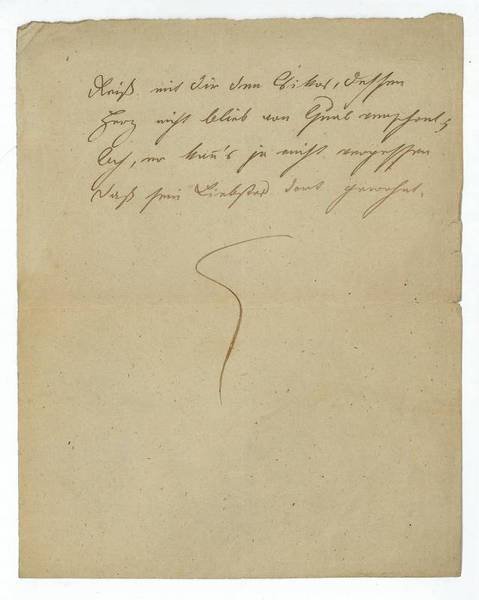 Reiß mit dir den Csikos, dessen
Herz nicht blieb von Qual verschont,
Ach, er kann's ja nicht vergessen
Daß sein Liebstes dort gewohnt.